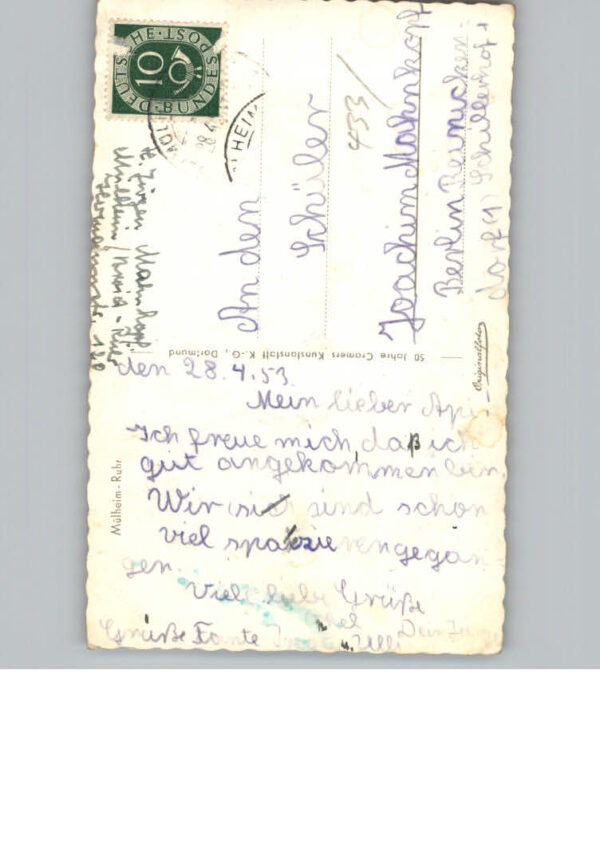 DEUTSCHE BUNDESPOST
10
HEIM
An den
Schüler
Joachim Mahnkopf
Berlin Reinicken-
dorf (1) Schillerhof 1
433
H. Jürgen Mahnkopf
Mülheim/Ruhr
120
50 Jahre Cramers Kunstanstalt K.-G., Dortmund
Originalfoto
Mülheim-Ruhr
den 28.4.53.
Mein lieber
Ich freue mich daß ich
gut angekommen bin.
Wir sind schon
viel spazierengegan-
gen.
Viele liebe Grüße
Dein
Grüße Tante u. Ulli